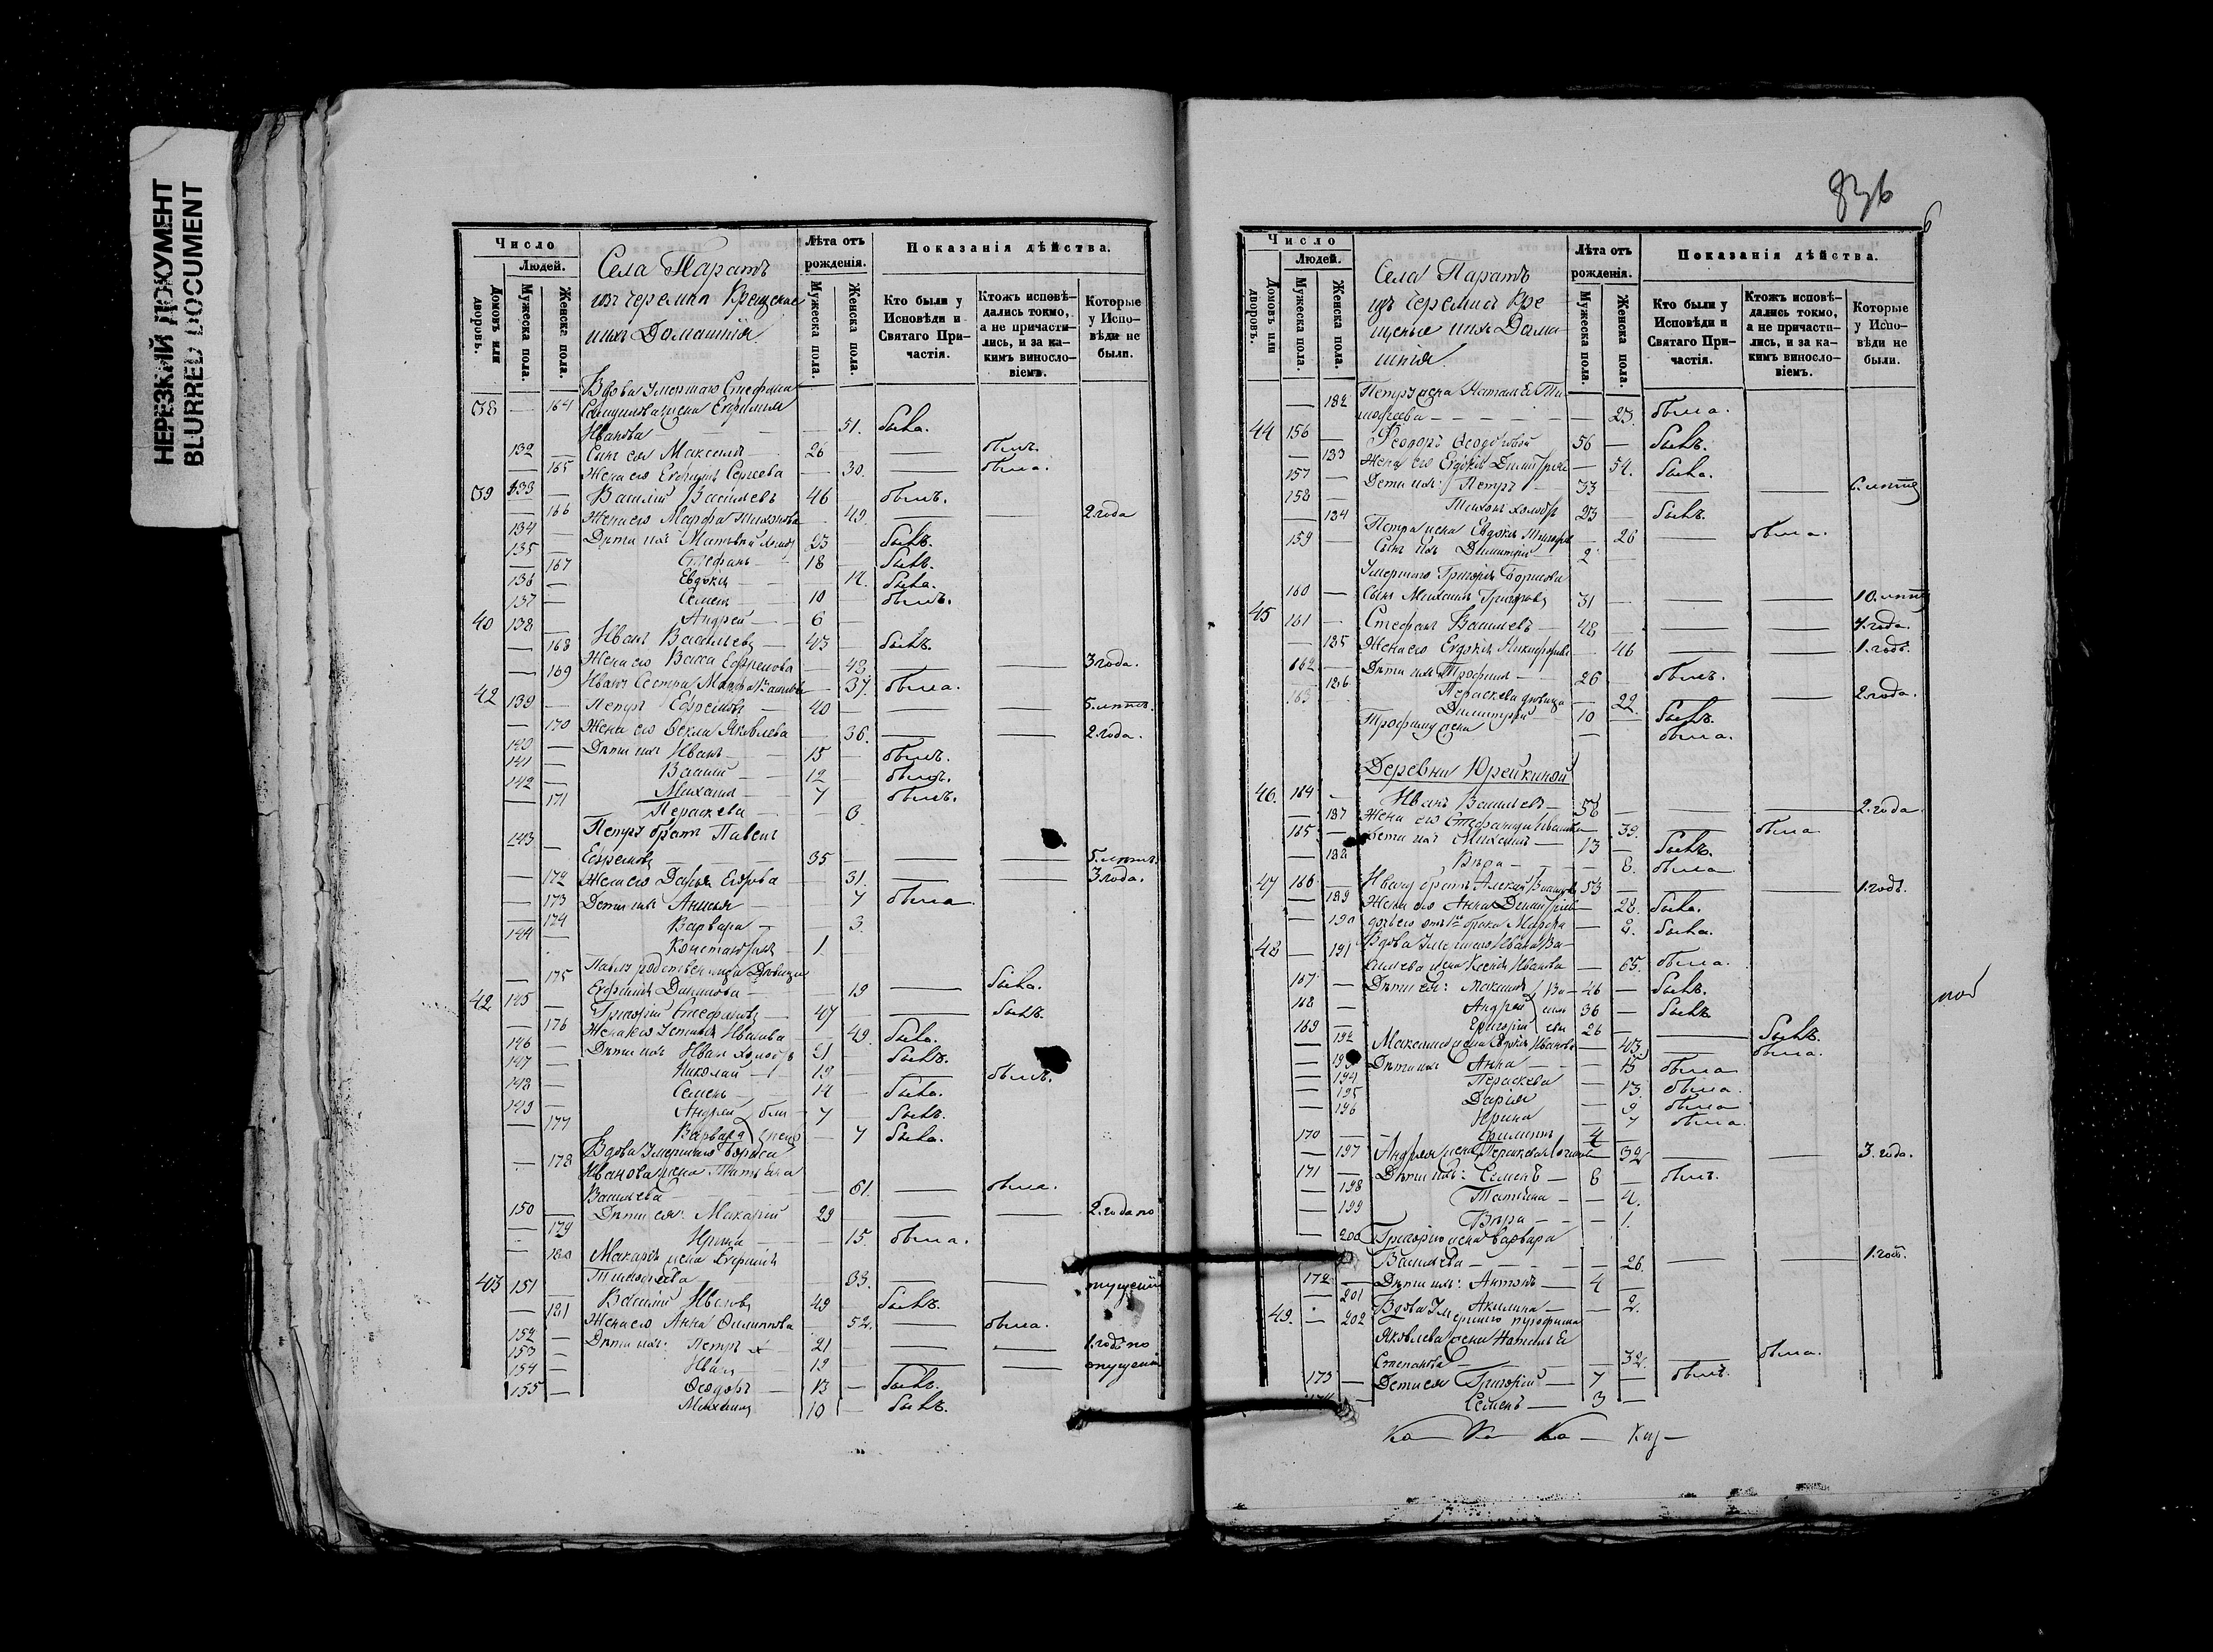 НЕРЕЗКИЙ ДОКУМЕНТ
BLURRED DOCUMENT
Число
Людей.
Домовъ или дворовъ.
Мужеска пола.
Женска пола.
Села Паратъ
изъ черемисъ Крещеные
ихъ Домашнія
Лѣта отъ рожденія.
Мужеска пола.
Женска пола.
Показанія дѣйства.
Кто были у Исповѣди и Святаго Причастія.
Ктожъ исповѣдались токмо, а не причастились, и за какимъ винословіемъ.
Которые у Исповѣди не были.
Вдова Умершаго Стефана
38 — 164 жена Евфимія
Иванова — 51. была.
132 — Сынъ ея Максимъ 26 — былъ.
165 Жена его Евфимія Сергеева — 30. — была.
39 133 — Василій Васильевъ 46 — былъ.
166 Жена его Марфа Тихонова — 49. — — 2 года
134 — Дѣти ихъ Матвей 23 — былъ.
135 — Стефанъ 18 — былъ.
167 Евдокія — была.
136 — Семенъ 10 — былъ.
137 — Андрей 6 —
40 138 Иванъ Васильевъ 43 — былъ.
168 Жена его Васса Ефремова — 48 — — 3 года.
169 Ивана Сестра — 37. была.
42 139 — Петръ Ефремовъ 40 — — — 5 лѣтъ.
170 Жена его Фекла Яковлева — 36. — — 2. года.
140 — Дѣти ихъ Иванъ 15 — былъ.
141 — Василій 12 — былъ.
142 — Михаилъ 7 — былъ.
171 Параскева
143 — Петра братъ Павелъ
Ефремовъ 35 — — — 5 лѣтъ.
172 Жена его Дарья Егорова — 31. — — 3 года.
173 Дети ихъ Анисья — 7 была
174 Варвара — 3.
144 — Константинъ 1 —
175 Павла родственница Дѣвица
Евфимія Данилова — 19 — была.
42 145 — Григорій Стефановъ 47 — — былъ.
176 Жена его Устинья Иванова — 49. была.
146 — Дѣти ихъ Иванъ 21 — былъ.
147 — Николай 19 — — былъ.
148 — Семенъ 14 —
149 — Андрей 7 — былъ.
177 Варвара — 7 была.
178 Вдова Умершаго Бориса
Иванова жена Татьяна
Васильева — 61. — была.
150 — Дѣти ея: Макарій 29 — — — 2. года по
179 Ирина — 15. была.
180 Макарія жена Евфимія
Тимофеева — 33. — — опущенію
43 151 — Василій Ивановъ 49 — былъ.
181 Жена его Анна Филиппова — 52. — была.
152 — Дѣти ихъ: Петръ 21 — — — 1. годъ по
153 — Иванъ 19 — — — опущенію
154 — Ѳеодоръ 13 — былъ.
155 — Михаилъ 10 — былъ.
836
6
Число
Людей.
Домовъ или дворовъ.
Мужеска пола.
Женска пола.
Села Паратъ
изъ черемисъ Кре
щеные ихъ Дома
шнія
Лѣта отъ рожденія.
Мужеска пола.
Женска пола.
Показанія дѣйства.
Кто были у Исповѣди и Святаго Причастія.
Ктожъ исповѣдались токмо, а не причастились, и за какимъ винословіемъ.
Которые у Исповѣди не были.
182 Петра жена Наталья Ти
мофеева — 23. была.
44 156 — Феодоръ 56 — былъ.
183 Жена его Евдокія — 54. была.
157 — Дети ихъ: Петръ 33 — — — 6. лѣтъ
158 — Тихонъ 23 — былъ.
184 Петра жена Евдокія — 26 — была.
159 — Сынъ ихъ Димитрій 2
Умершаго Григорія Борисова
160 — Сынъ Михаилъ Григорьевъ 31 — — — 10. лѣтъ
45 161 — Стефанъ Васильевъ 48 — — — 4. года.
185 Жена его Евдокія Никифорова — 46 — — 1. годъ.
162 — Дѣти ихъ Трофимъ 26 былъ.
186 Параскева дѣвица — 22. — — 2 года.
163 — Димитрій 10 — былъ.
Трофима жена — была.
Деревни Юрейкиной
46. 164 — Иванъ Васильевъ 58 — — — 2. года
187 Жена его Стефанида — 39. — была
165 — Дети ихъ Михаилъ 13 — былъ.
188 Вѣра — 8. была
47 166 — Ивана братъ Алексій 53 — — — 1. годъ.
189 Жена его Анна — 28. была.
190 дочь его отъ 1го брака Марфа — 9. была.
48 — 191 Вдова Умершаго Ивана Ва-
сильева жена Ксенія Иванова — 65. была.
167 — Дѣти ея: Максимъ 46 — былъ.
168 — Андрей 36 — былъ
169 — Григорій 26 — — былъ.
192 Максима жена Иванова — 43. — была.
193 Дѣти ихъ Анна — 15 была
194 Параскева — 13. была.
195 Дарія — 9 была
196 Ирина — 7 была.
170 — Филиппъ 4 —
197 Андрея жена Параскева — 32 — — 3. года.
171 — Дѣти ихъ: Семенъ 6 — былъ.
198 Татіана — 4.
199 Вѣра — 1.
200 Григорія жена Варвара
Васильева — 26. — — 1. годъ.
172 — Дѣти ихъ: Антонъ 4 —
201 Акилина — 2.
49. — 202 Вдова Умершаго Трофима
Яковлева жена Наталья
Степанова — 32. — была.
173 — Дети ея Григорій 7 — былъ.
Семенъ 3 —